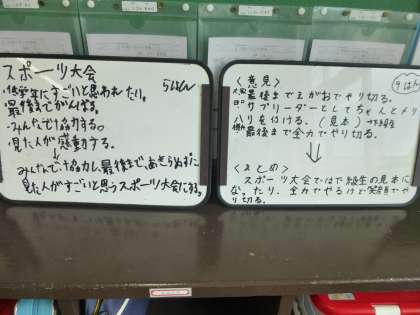 スポーツ大会
5はん
・低学年にすごいと思われたり。
最後までがんばる。
・みんなで協力する。
・見た人が感動する。
↓
みんなで協力し、最後まであきらめずに、
見た人がすごいと思うスポーツ大会にする。
<意見>
9はん
最後までえがおでやり切る。
サブリーダーとしてちゃんとメリ
ハリを付ける。(見本)
最後まで全力でやり切る。
↓
<まとめ>
スポーツ大会では下級生の見本に
なったり、全力でやるけど笑顔でや
り切る。